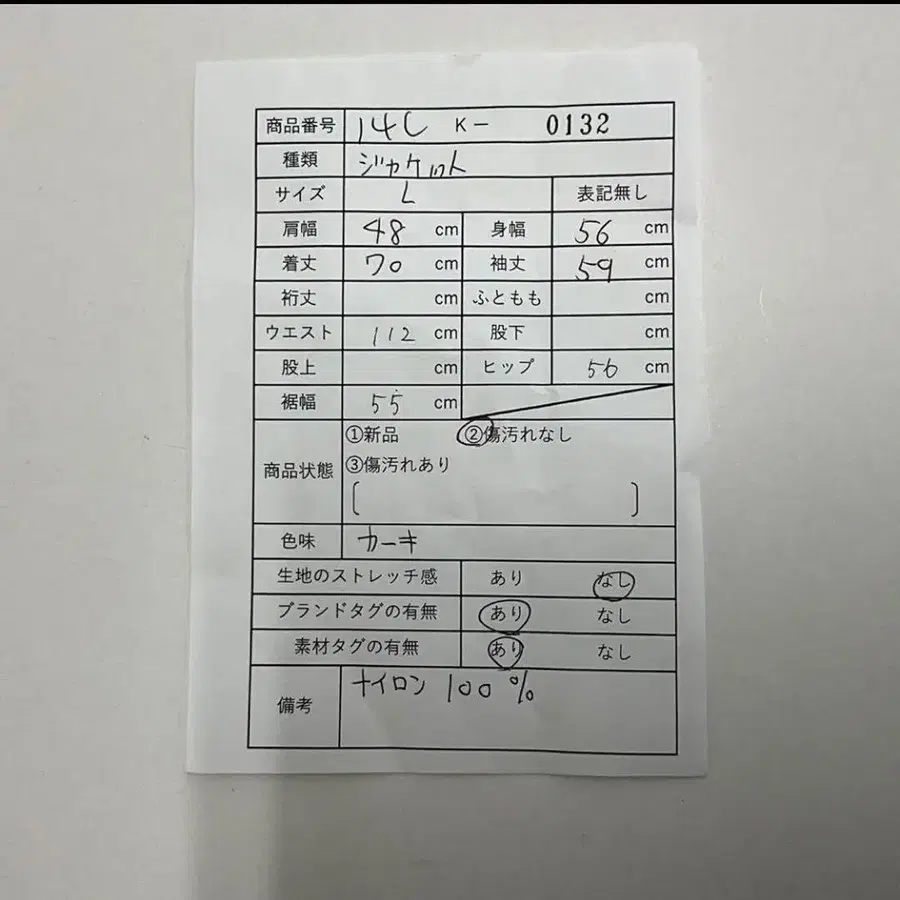 商品番号 14L K- 0132
種類 ジャケット
サイズ L 表記無し
肩幅 48 cm 身幅 56 cm
着丈 70 cm 袖丈 59 cm
裄丈 cm ふともも cm
ウエスト 112 cm 股下 cm
股上 cm ヒップ 56 cm
裾幅 55 cm
商品状態 ①新品 ②傷汚れなし
③傷汚れあり
[ ]
色味 カーキ
生地のストレッチ感 あり なし
ブランドタグの有無 あり なし
素材タグの有無 あり なし
備考 ナイロン 100%